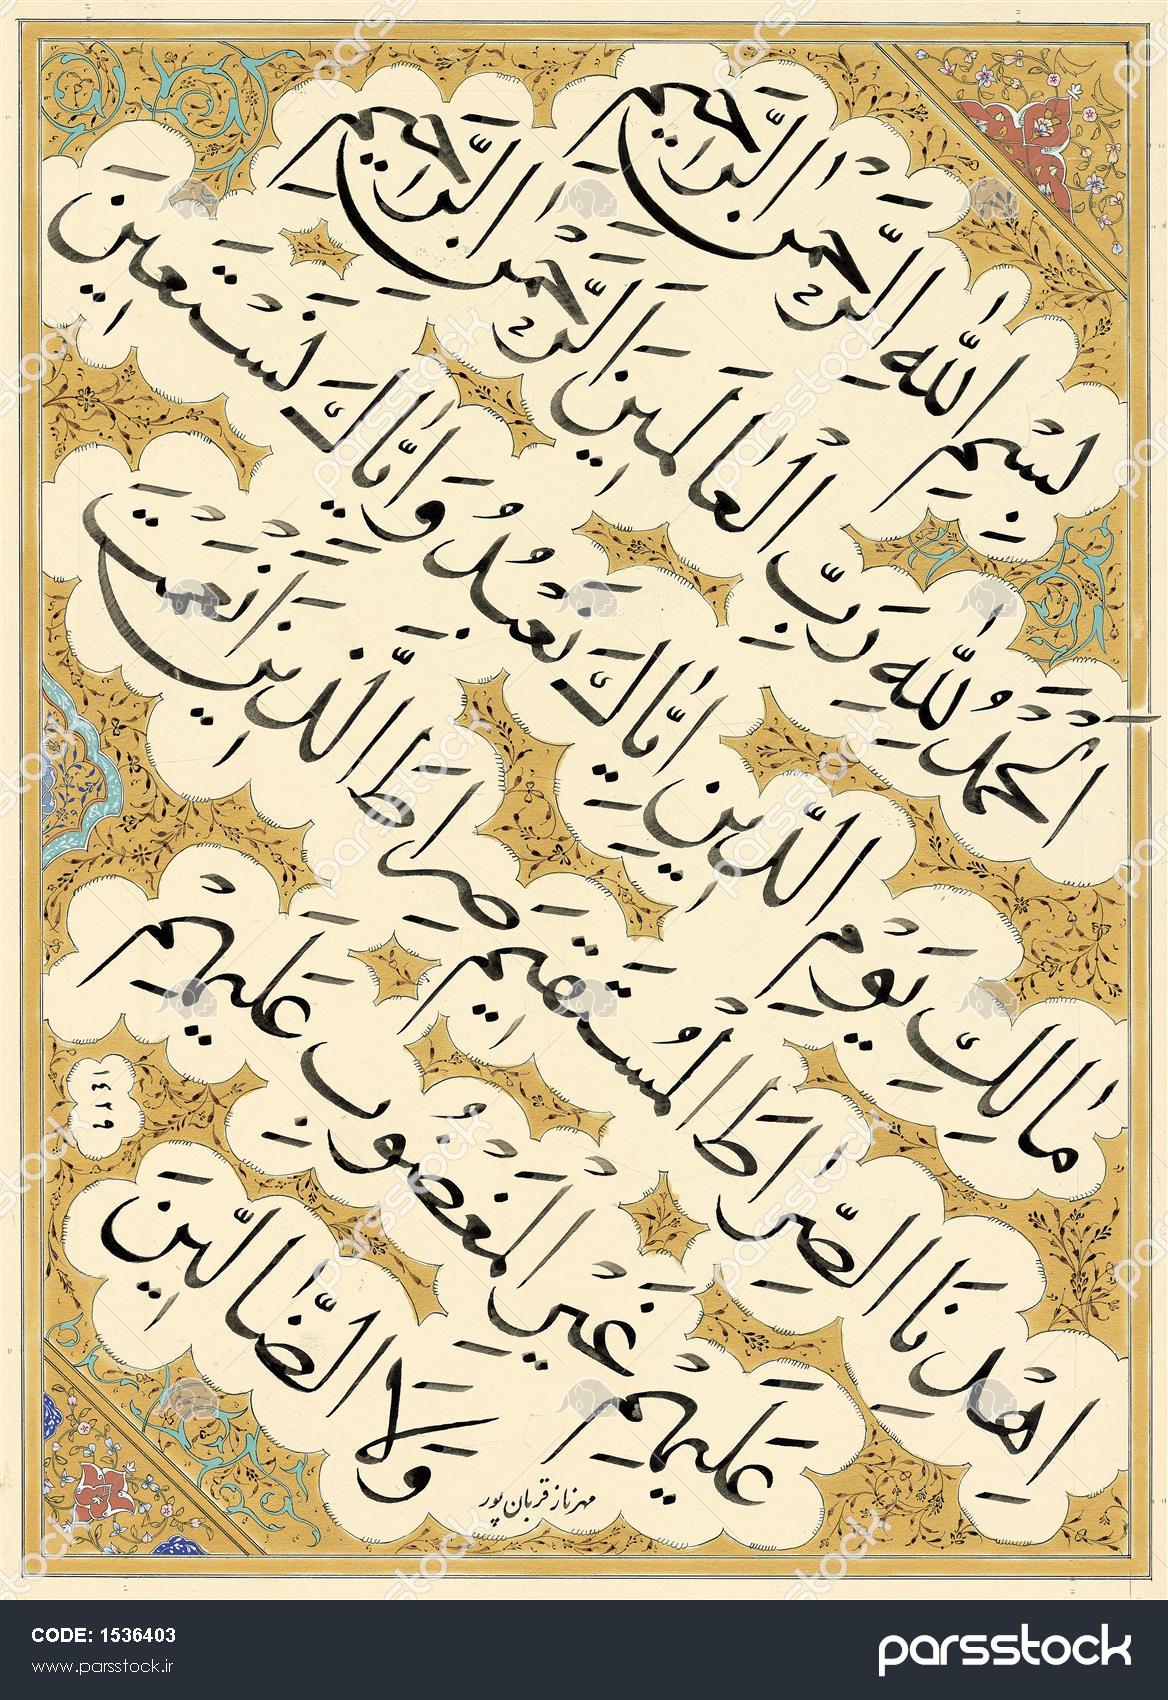 بِسْمِ اللَّهِ الرَّحْمٰنِ الرَّحِيمِ
الْحَمْدُ لِلَّهِ رَبِّ الْعَالَمِينَ الرَّحْمٰنِ الرَّحِيمِ
مَالِكِ يَوْمِ الدِّينِ إِيَّاكَ نَعْبُدُ وَإِيَّاكَ نَسْتَعِينَ
اهْدِنَا الصِّرَاطَ الْمُسْتَقِيمَ صِرَاطَ الَّذِينَ أَنْعَمْتَ
عَلَيْهِمْ غَيْرِ الْمَغْضُوبِ عَلَيْهِمْ
وَلَا الضَّالِّينَ
۱٤۲۹
مهرناز قربان پور
CODE: 1536403
www.parsstock.ir
parsstock